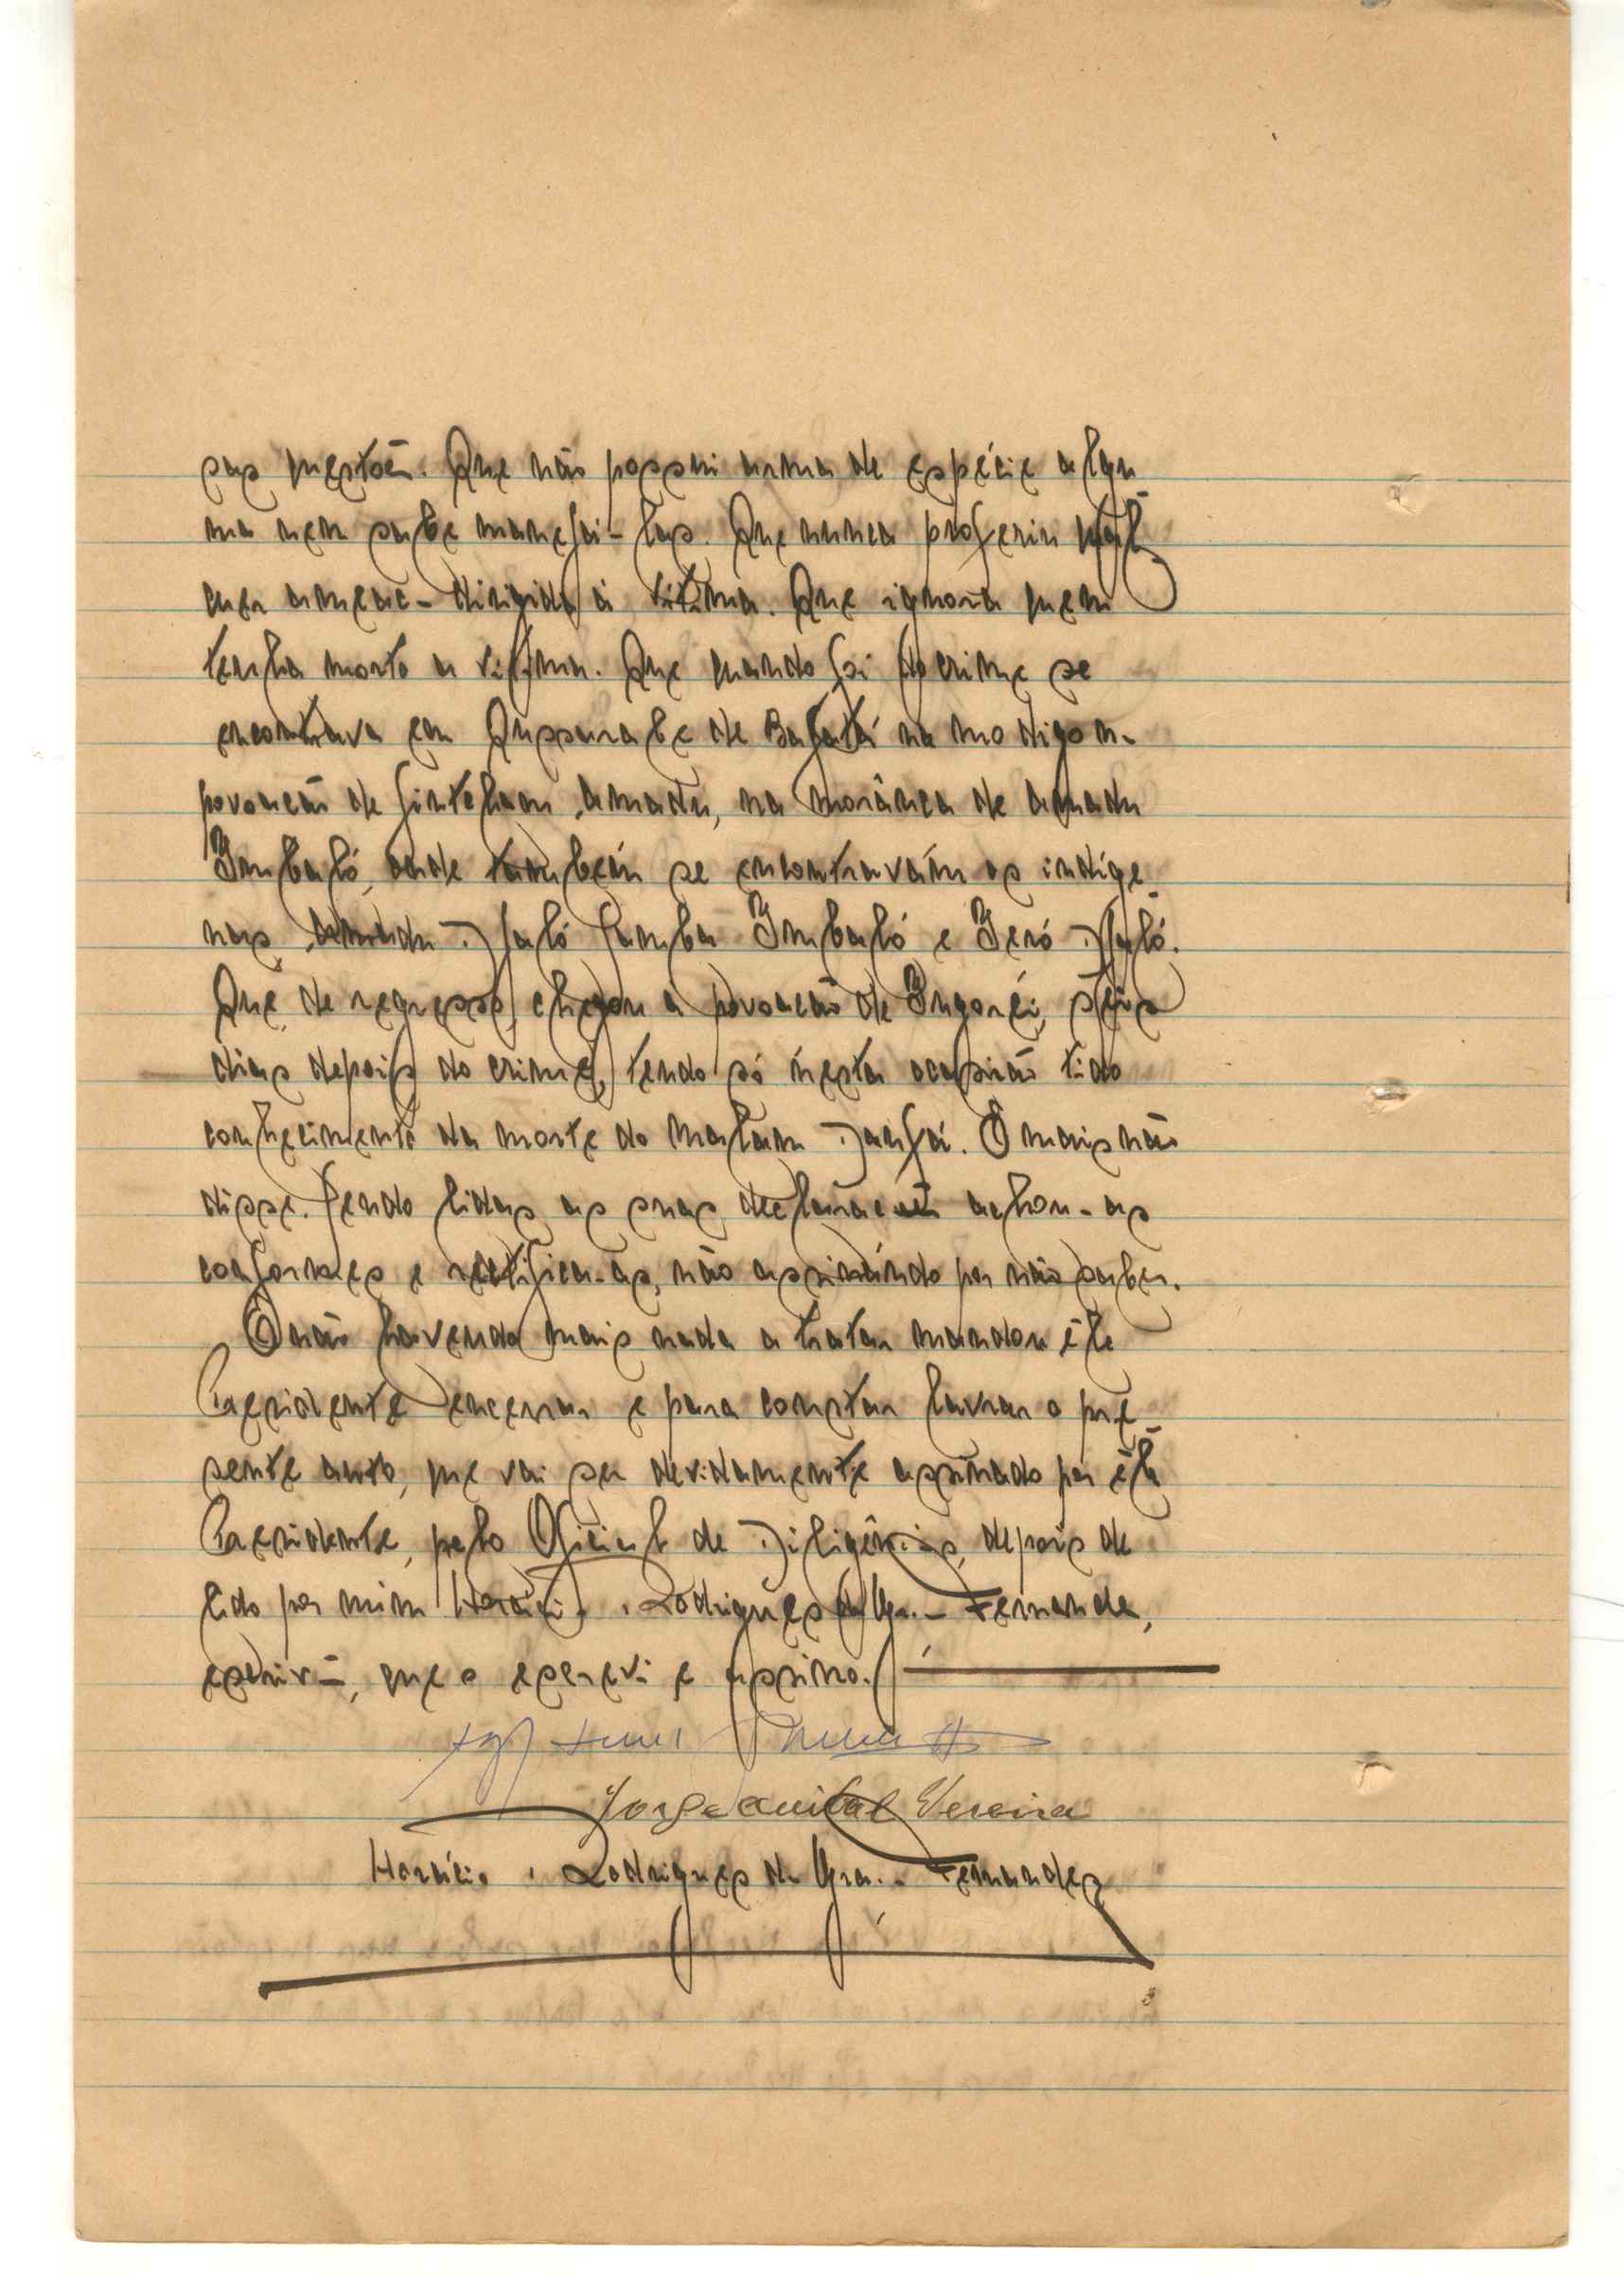 sas questões. Que não possui arma de espécie algu-
ma nem sabe manejá-las. Que nunca proferiu qual
quer ameaça dirigida à vítima. Que ignora quem
tenha morto a vítima. Que quando foi do crime se
encontrava em de Bafatá na
povoação de Amadu, na morança de Amadu
Embaló, onde também se encontravam os indíge-
nas, Amadu Djaló Samba Embaló e Djaló.
Que, de regresso, chegou a povoação de Ingoréi, seis
dias depois do crime, tendo só nesta ocasião tido
conhecimento da morte do Malam . E mais não
disse. Sendo lidas as suas declarações achou-as
conformes e ratifica-as, não assinando por não saber.
E não havendo mais nada a tratar mandou êle
Presidente encerrar e para constar lavrar o pre-
sente auto, que vai ser devidamente assinado por êle
Presidente, pelo Oficial de Diligências, depois de
lido por mim Horácio Rodrigues da Fernandes,
escrivão, que o escrevi e assino.
Jorge Anibal Pereira
Horácio Rodrigues da Fernandes